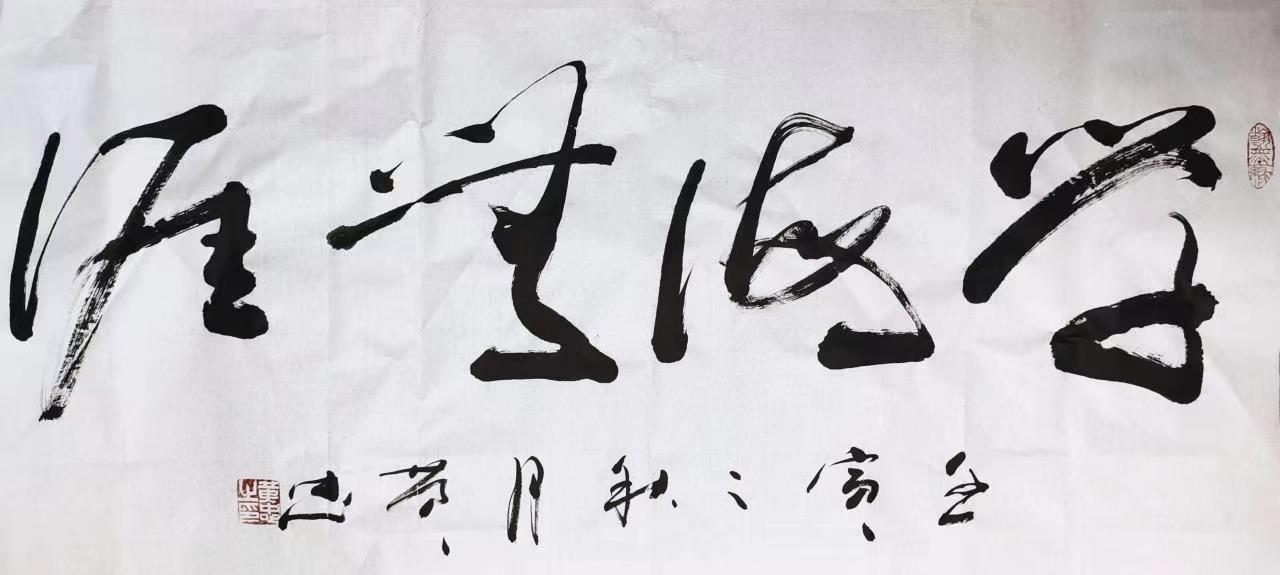 学海無涯
壬寅之秋月黄忠